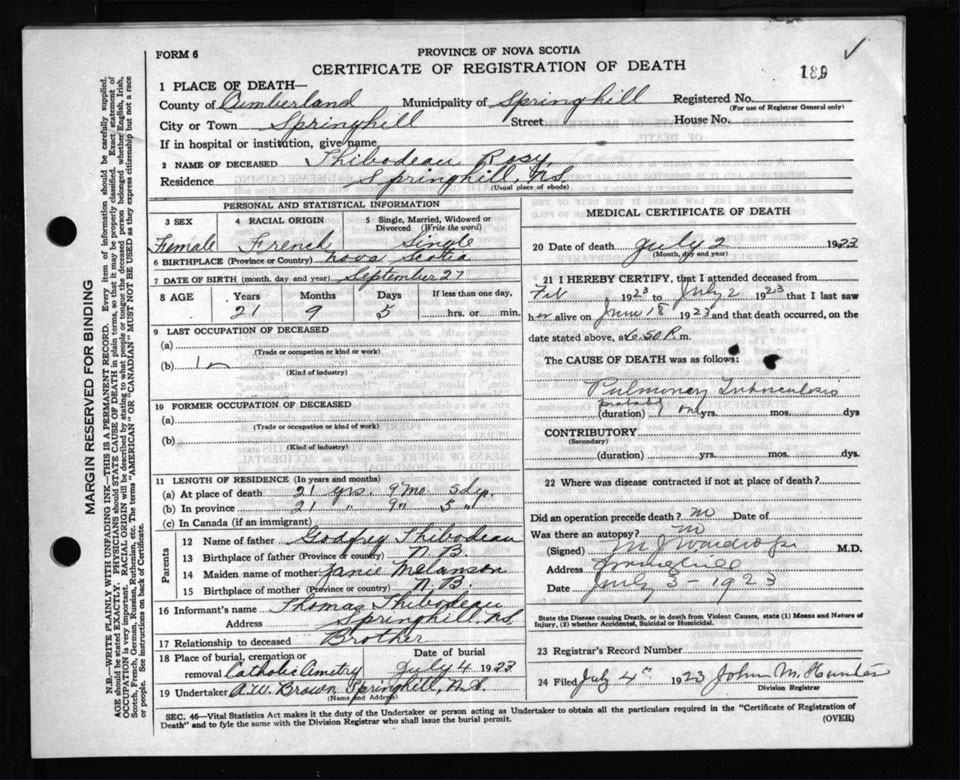 FORM 6
PROVINCE OF NOVA SCOTIA
CERTIFICATE OF REGISTRATION OF DEATH
189
1 PLACE OF DEATH—
County of Cumberland Municipality of Springhill Registered No.
(For use of Registrar General only)
City or Town Springhill Street House No.
If in hospital or institution, give name
2 NAME OF DECEASED Thibodeau Rosy
Residence Springhill, N.S.
(Usual place of abode)
PERSONAL AND STATISTICAL INFORMATION
3 SEX 4 RACIAL ORIGIN 5 Single, Married, Widowed or Divorced (Write the word)
Female French Single
6 BIRTHPLACE (Province or Country) Nova Scotia
7 DATE OF BIRTH (month, day and year) September 27
8 AGE Years Months Days If less than one day,
21 9 5 hrs. or min.
9 LAST OCCUPATION OF DECEASED
(a)
(Trade or occupation or kind or work)
(b)
(Kind of industry)
10 FORMER OCCUPATION OF DECEASED
(a)
(Trade or occupation or kind of work)
(b)
(Kind of industry)
11 LENGTH OF RESIDENCE (In years and months)
(a) At place of death 21 yrs. 9 mo 5 dys.
(b) In province 21 " 9 " 5 "
(c) In Canada (if an immigrant)
Parents
12 Name of father Godfrey Thibodeau
13 Birthplace of father (Province or country) N.B.
14 Maiden name of mother Janie Melanson
15 Birthplace of mother (Province or country) N.B.
16 Informant's name Thomas Thibodeau
Address Springhill, N.S.
17 Relationship to deceased Brother
18 Place of burial, cremation or Date of burial
removal Catholic Cemetry July 4 1923
19 Undertaker A.W. Brown Springhill, N.S.
(Name and Address)
MEDICAL CERTIFICATE OF DEATH
20 Date of death July 2 1923
(Month, day and year)
21 I HEREBY CERTIFY, that I attended deceased from
Feb 1923 to July 2 1923 that I last saw
her alive on June 18 1923 and that death occurred, on the
date stated above, at 6.50 P. m.
The CAUSE OF DEATH was as follows:
Pulmonary Tuberculosis
probably
(duration) one yrs. mos. dys
CONTRIBUTORY
(Secondary)
(duration) yrs. mos. dys.
22 Where was disease contracted if not at place of death?
Did an operation precede death? no Date of
Was there an autopsy? no
(Signed) M J Wardrope M.D.
Address Springhill
Date July 3 - 1923
State the Disease causing Death, or in death from Violent Causes, state (1) Means and Nature of
Injury, (2) whether Accidental, Suicidal or Homicidal.
23 Registrar's Record Number
24 Filed July 4th 1923 John M. Hunter
Division Registrar
SEC. 46—Vital Statistics Act makes it the duty of the Undertaker or person acting as Undertaker to obtain all the particulars required in the "Certificate of Registration of
Death" and to fyle the same with the Division Registrar who shall issue the burial permit. (OVER)
MARGIN RESERVED FOR BINDING
N.B—WRITE PLAINLY WITH UNFADING INK—THIS IS A PERMANENT RECORD. Every item of information should be carefully supplied.
AGE should be stated EXACTLY. PHYSICIANS should STATE CAUSE OF DEATH in plain terms, so that it may be properly classified. Exact statement of
OCCUPATION is very important. RACIAL ORIGIN will be described by stating to what people or tongue the deceased person belonged whether English, Irish,
Scotch, French, German, Russian, Ruthenian, etc. The terms "AMERICAN" OR "CANADIAN" MUST NOT BE USED as they express citizenship but not a race
or people. See instructions on back of Certificate.